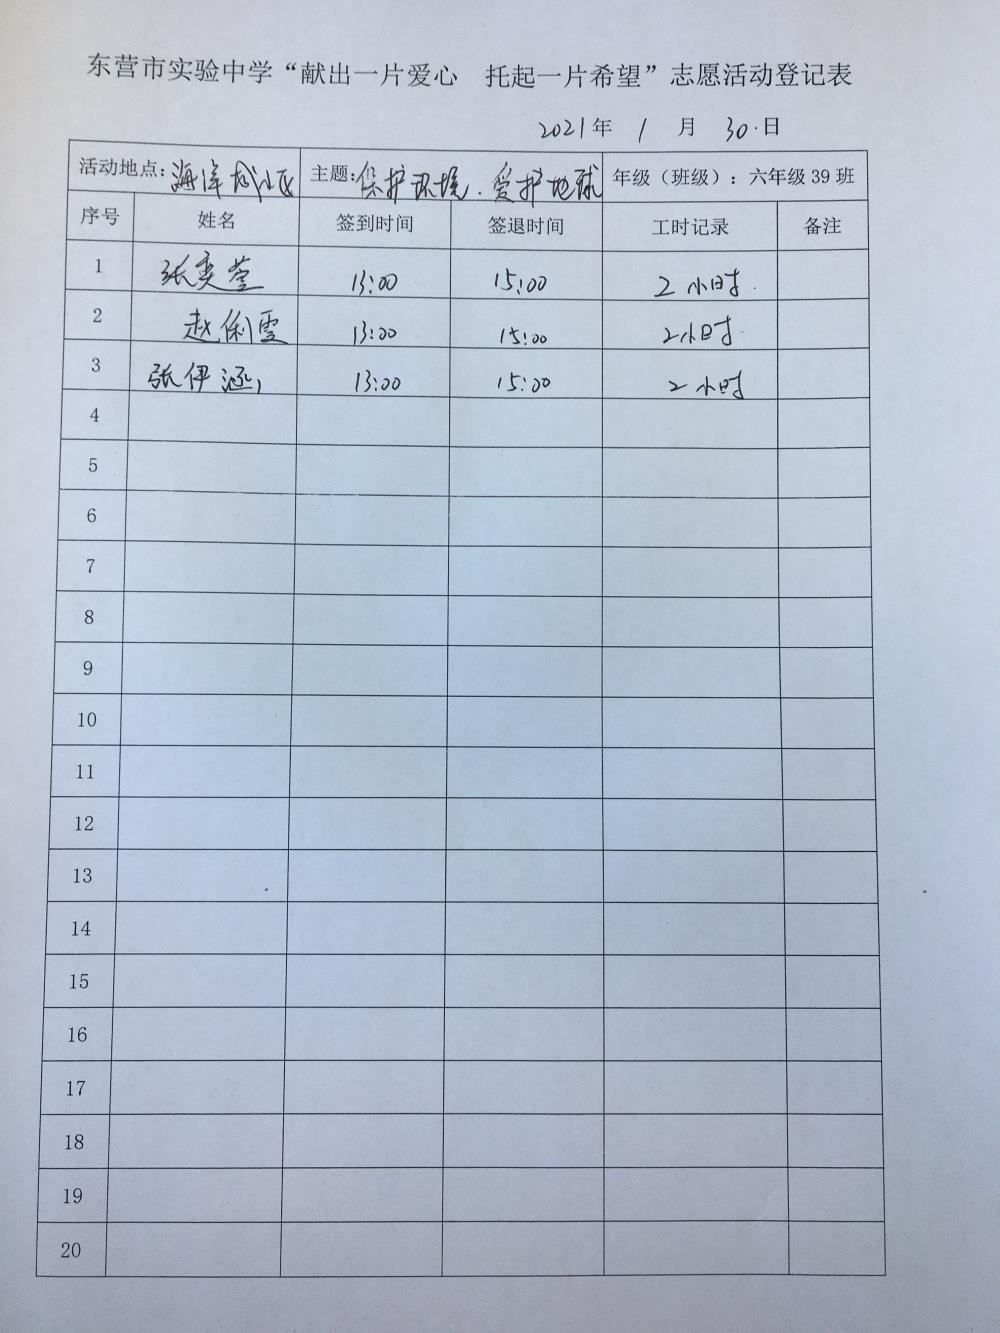 东营市实验中学“献出一片爱心 托起一片希望”志愿活动登记表
2021年 1 月 30日
活动地点：海洋 小区 主题：保护环境.爱护地球 年级（班级）：六年级39班
序号 姓名 签到时间 签退时间 工时记录 备注
1 张奕莹 13:00 15:00 2小时
2 赵俐雯 13:00 15:00 2小时
3 张伊涵 13:00 15:00 2小时
4
5
6
7
8
9
10
11
12
13
14
15
16
17
18
19
20